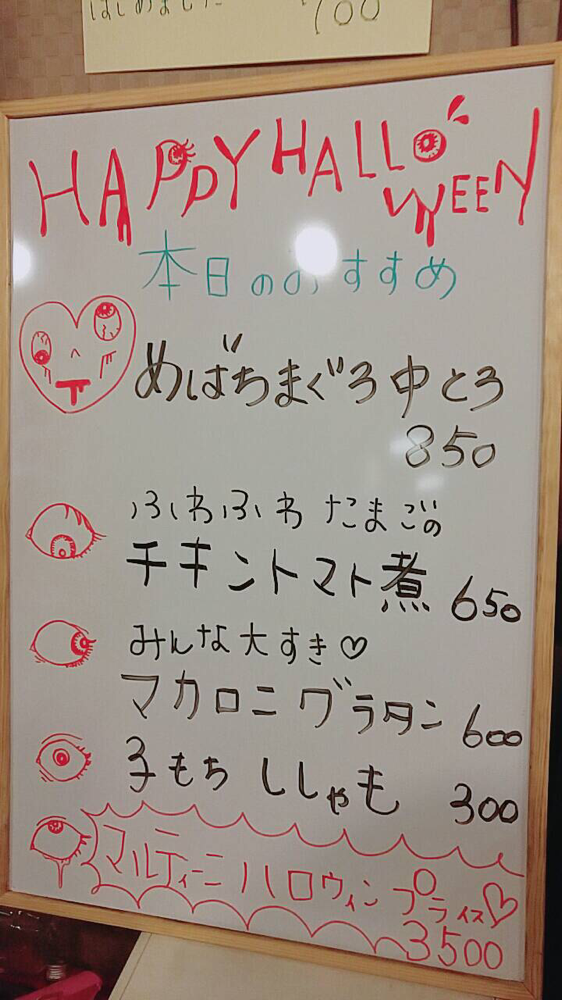 はじめました 700
HAPPY HALLOWEEN
本日のおすすめ
めばちまぐろ中とろ
850
ふわふわたまごの
チキントマト煮 650
みんな大すき♡
マカロニグラタン 600
子もちししゃも 300
マルティーニハロウィンプライス♡
3500